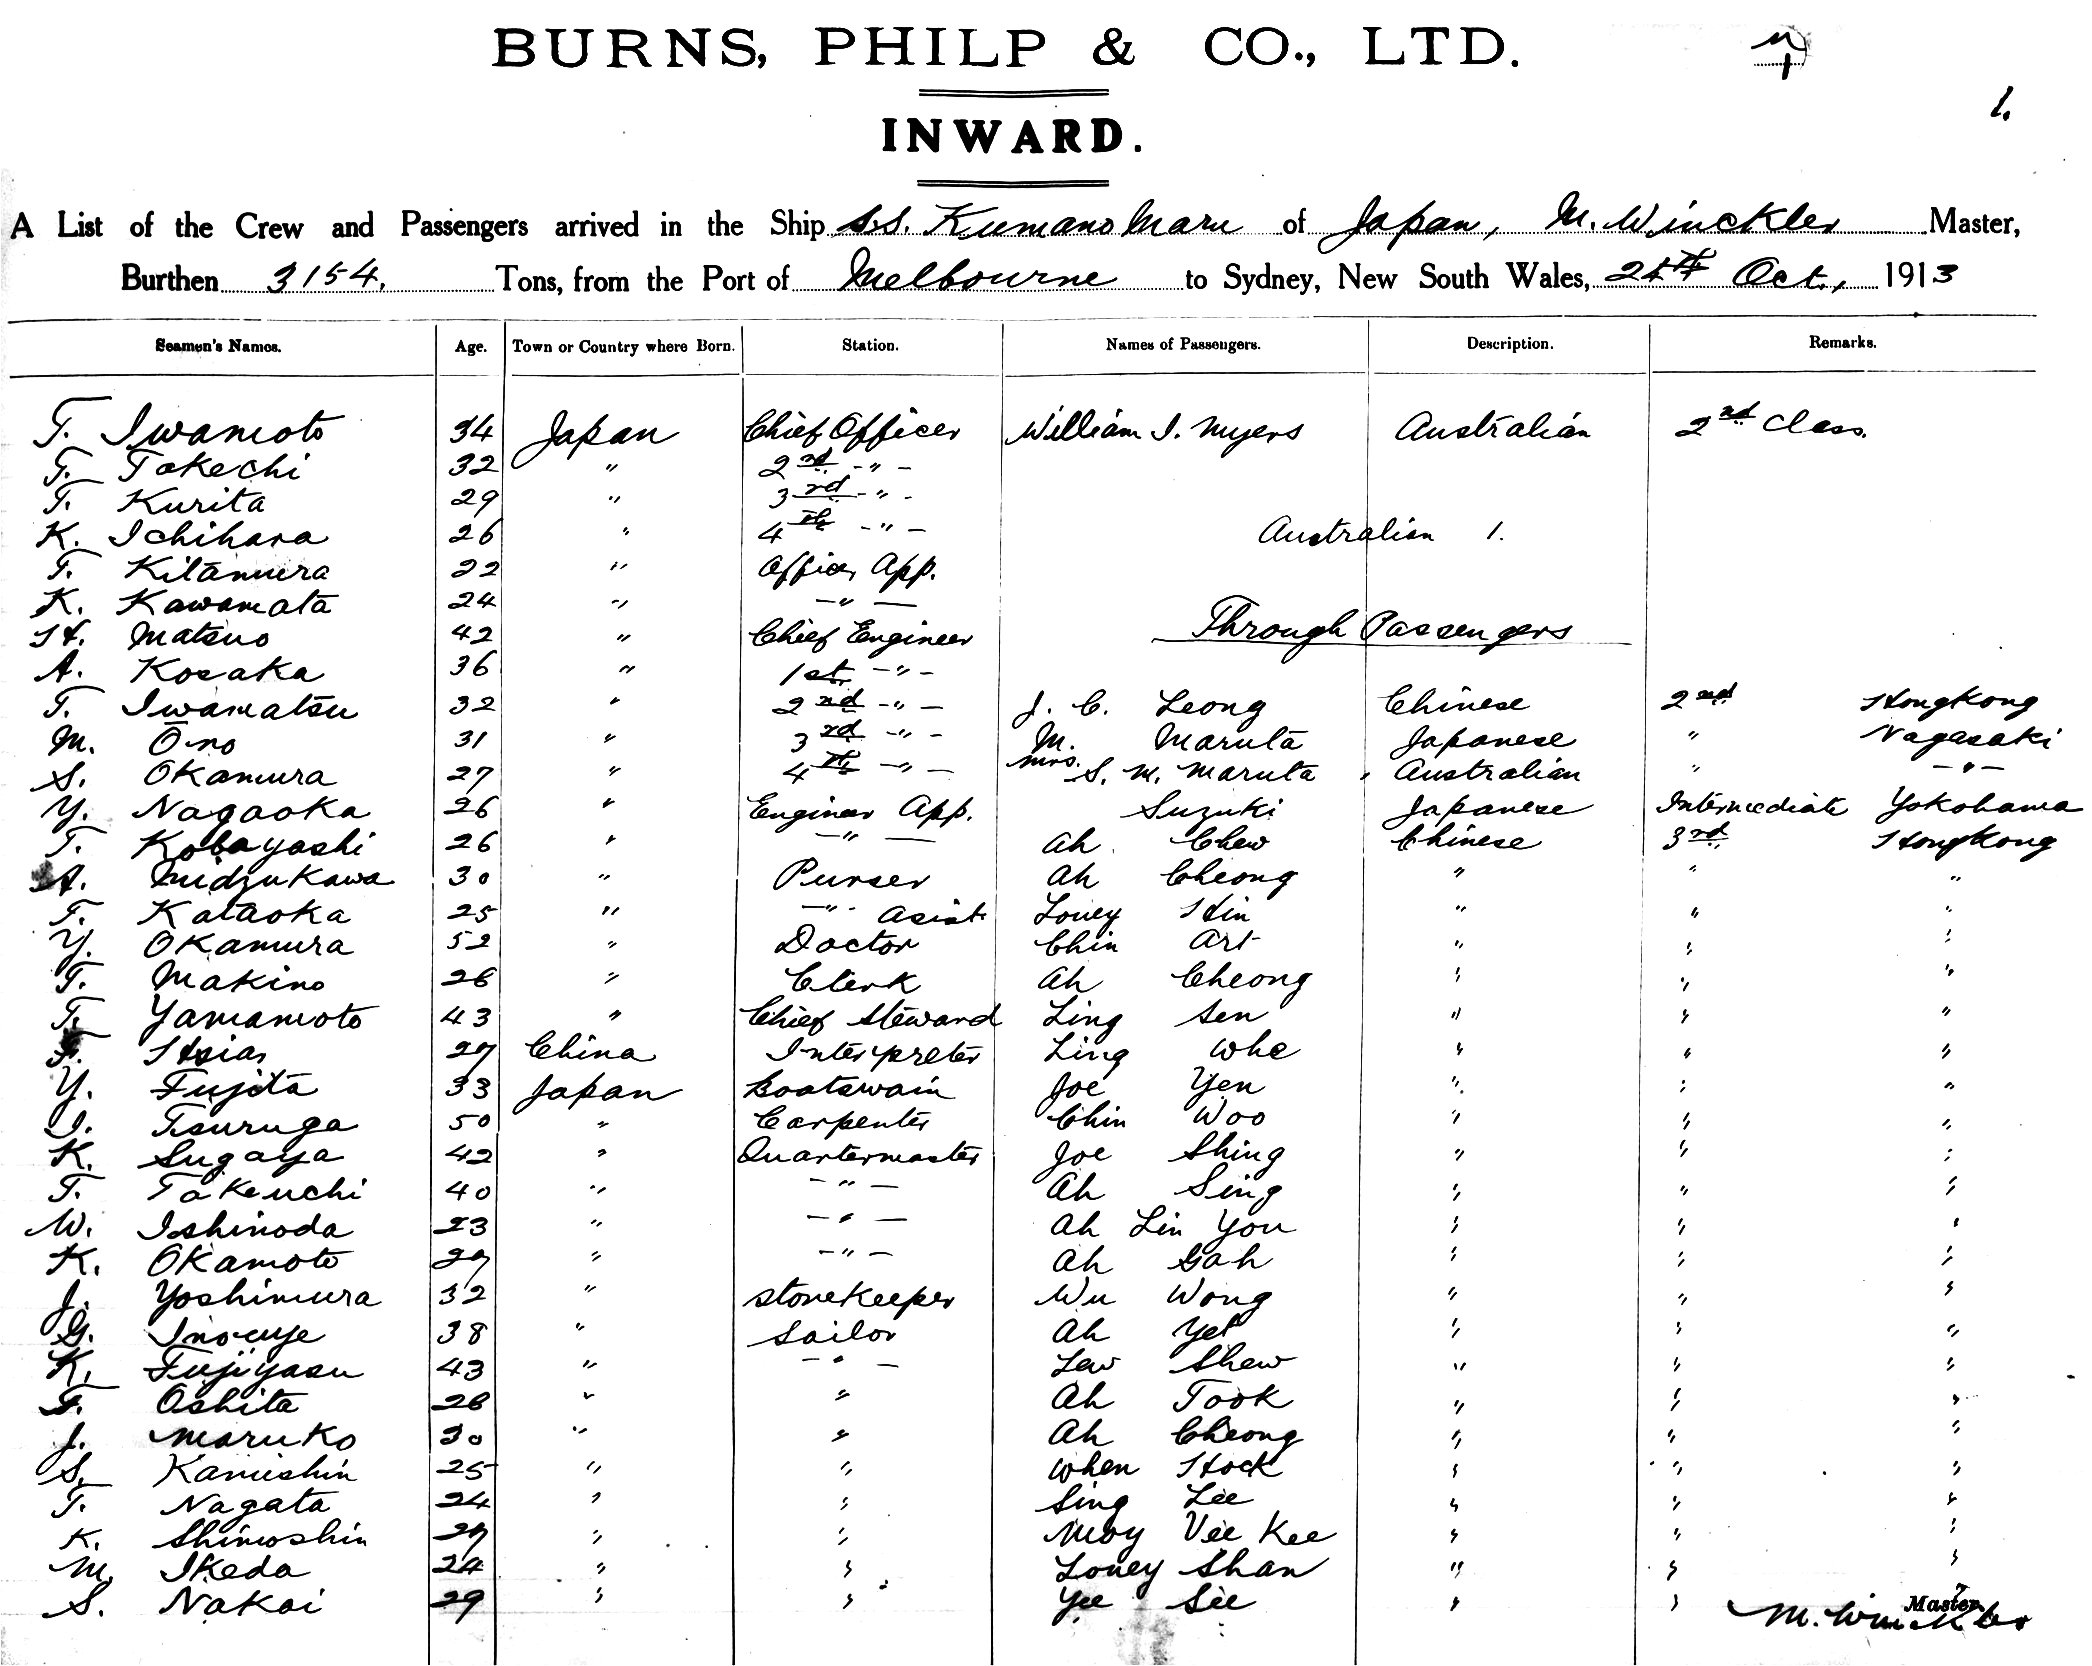 BURNS, PHILP & CO., LTD.
1.
INWARD.
A List of the Crew and Passengers arrived in the Ship S.S. Kumano Maru of Japan, M. Winckler Master,
Burthen 3154. Tons, from the Port of Melbourne to Sydney, New South Wales, Oct., 1913
Seamen's Names. Age. Town or Country where Born. Station. Names of Passengers. Description. Remarks.
T. Iwamoto 34 Japan Chief Officer William I. Myers Australian 2nd Class.
T. Takechi 32 " 2nd - " -
T. Kurita 29 " 3rd - " -
K. Ichihara 26 " 4th - " - Australian 1.
T. Kitamura 22 " Officer App.
K. Kawamata 24 " - " -
H. Matsuo 42 " Chief Engineer Through Passengers
A. Kosaka 36 " 1st. - " -
T. Iwamatsu 32 " 2nd - " - J. C. Leong Chinese 2nd Hongkong
M. Ono 31 " 3rd - " - M. Maruta Japanese " Nagasaki
S. Okamura 27 " 4th - " - Mrs. S. M. Maruta Australian " - " -
Y. Nagaoka 26 " Engineer App. Suzuki Japanese Intermediate Yokohama
T. Kobayashi 26 " - " - Ah Chew Chinese 3rd Hongkong
A. Midzukawa 30 " Purser Ah Cheong " " "
T. Kataoka 25 " - " - Asist. Loney Hin " " "
Y. Okamura 52 " Doctor Chin Art " " "
T. Makino 26 " Clerk Ah Cheong " " "
T. Yamamoto 43 " Chief Steward Ling Sen " " "
Hsia 29 China Interpreter Ling Whe " " "
Y. Fujita 33 Japan Boatswain Joe Yen " " "
I. Tsuruga 50 " Carpenter Chin Woo " " "
K. Sugaya 42 " Quartermaster Joe Shing " " "
T. Takeuchi 40 " - " - Ah Sing " " "
W. Ishinoda 23 " - " - Ah Lin You " " "
K. Okamoto 29 " - " - Ah Gah " " "
J. Yoshimura 32 " Storekeeper Wu Wong " " "
G. Inouye 38 " Sailor Ah Yet " " "
K. Fujiyasu 43 " - " - Lew Shew " " "
F. Oshita 28 " " Ah Took " " "
J. Maruko 30 " " Ah Cheong " " "
S. Kamishin 25 " " When Hock " " "
T. Nagata 24 " " Sing Lee " " "
K. Shimoshin 29 " " Moy Vee Kee " " "
M. Ikeda 24 " " Loney Shan " " "
S. Nakai 29 " " Yee See " " "
Master.
M. Winckler